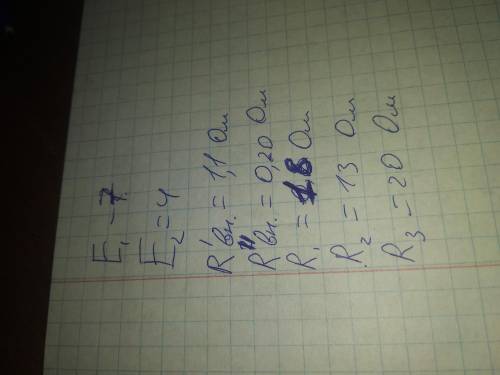 E₁ = 7
E₂ = 4
R'вн. = 1,1 Ом
R"вн. = 0,20 Ом
R₁ = Ом
R₂ = 13 Ом
R₃ = 20 Ом